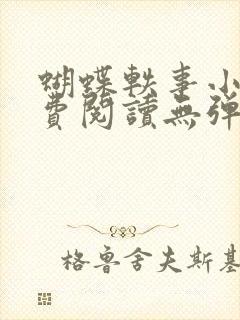 蝴蝶軼事小
費閱讀無彈
格魯舍夫斯基